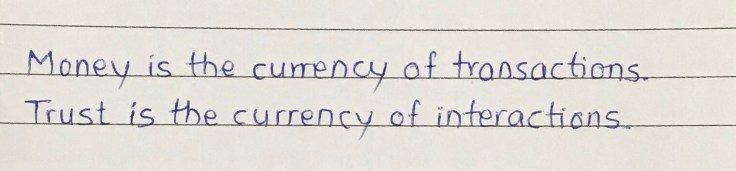 Money is the currency of transactions.
Trust is the currency of interactions.